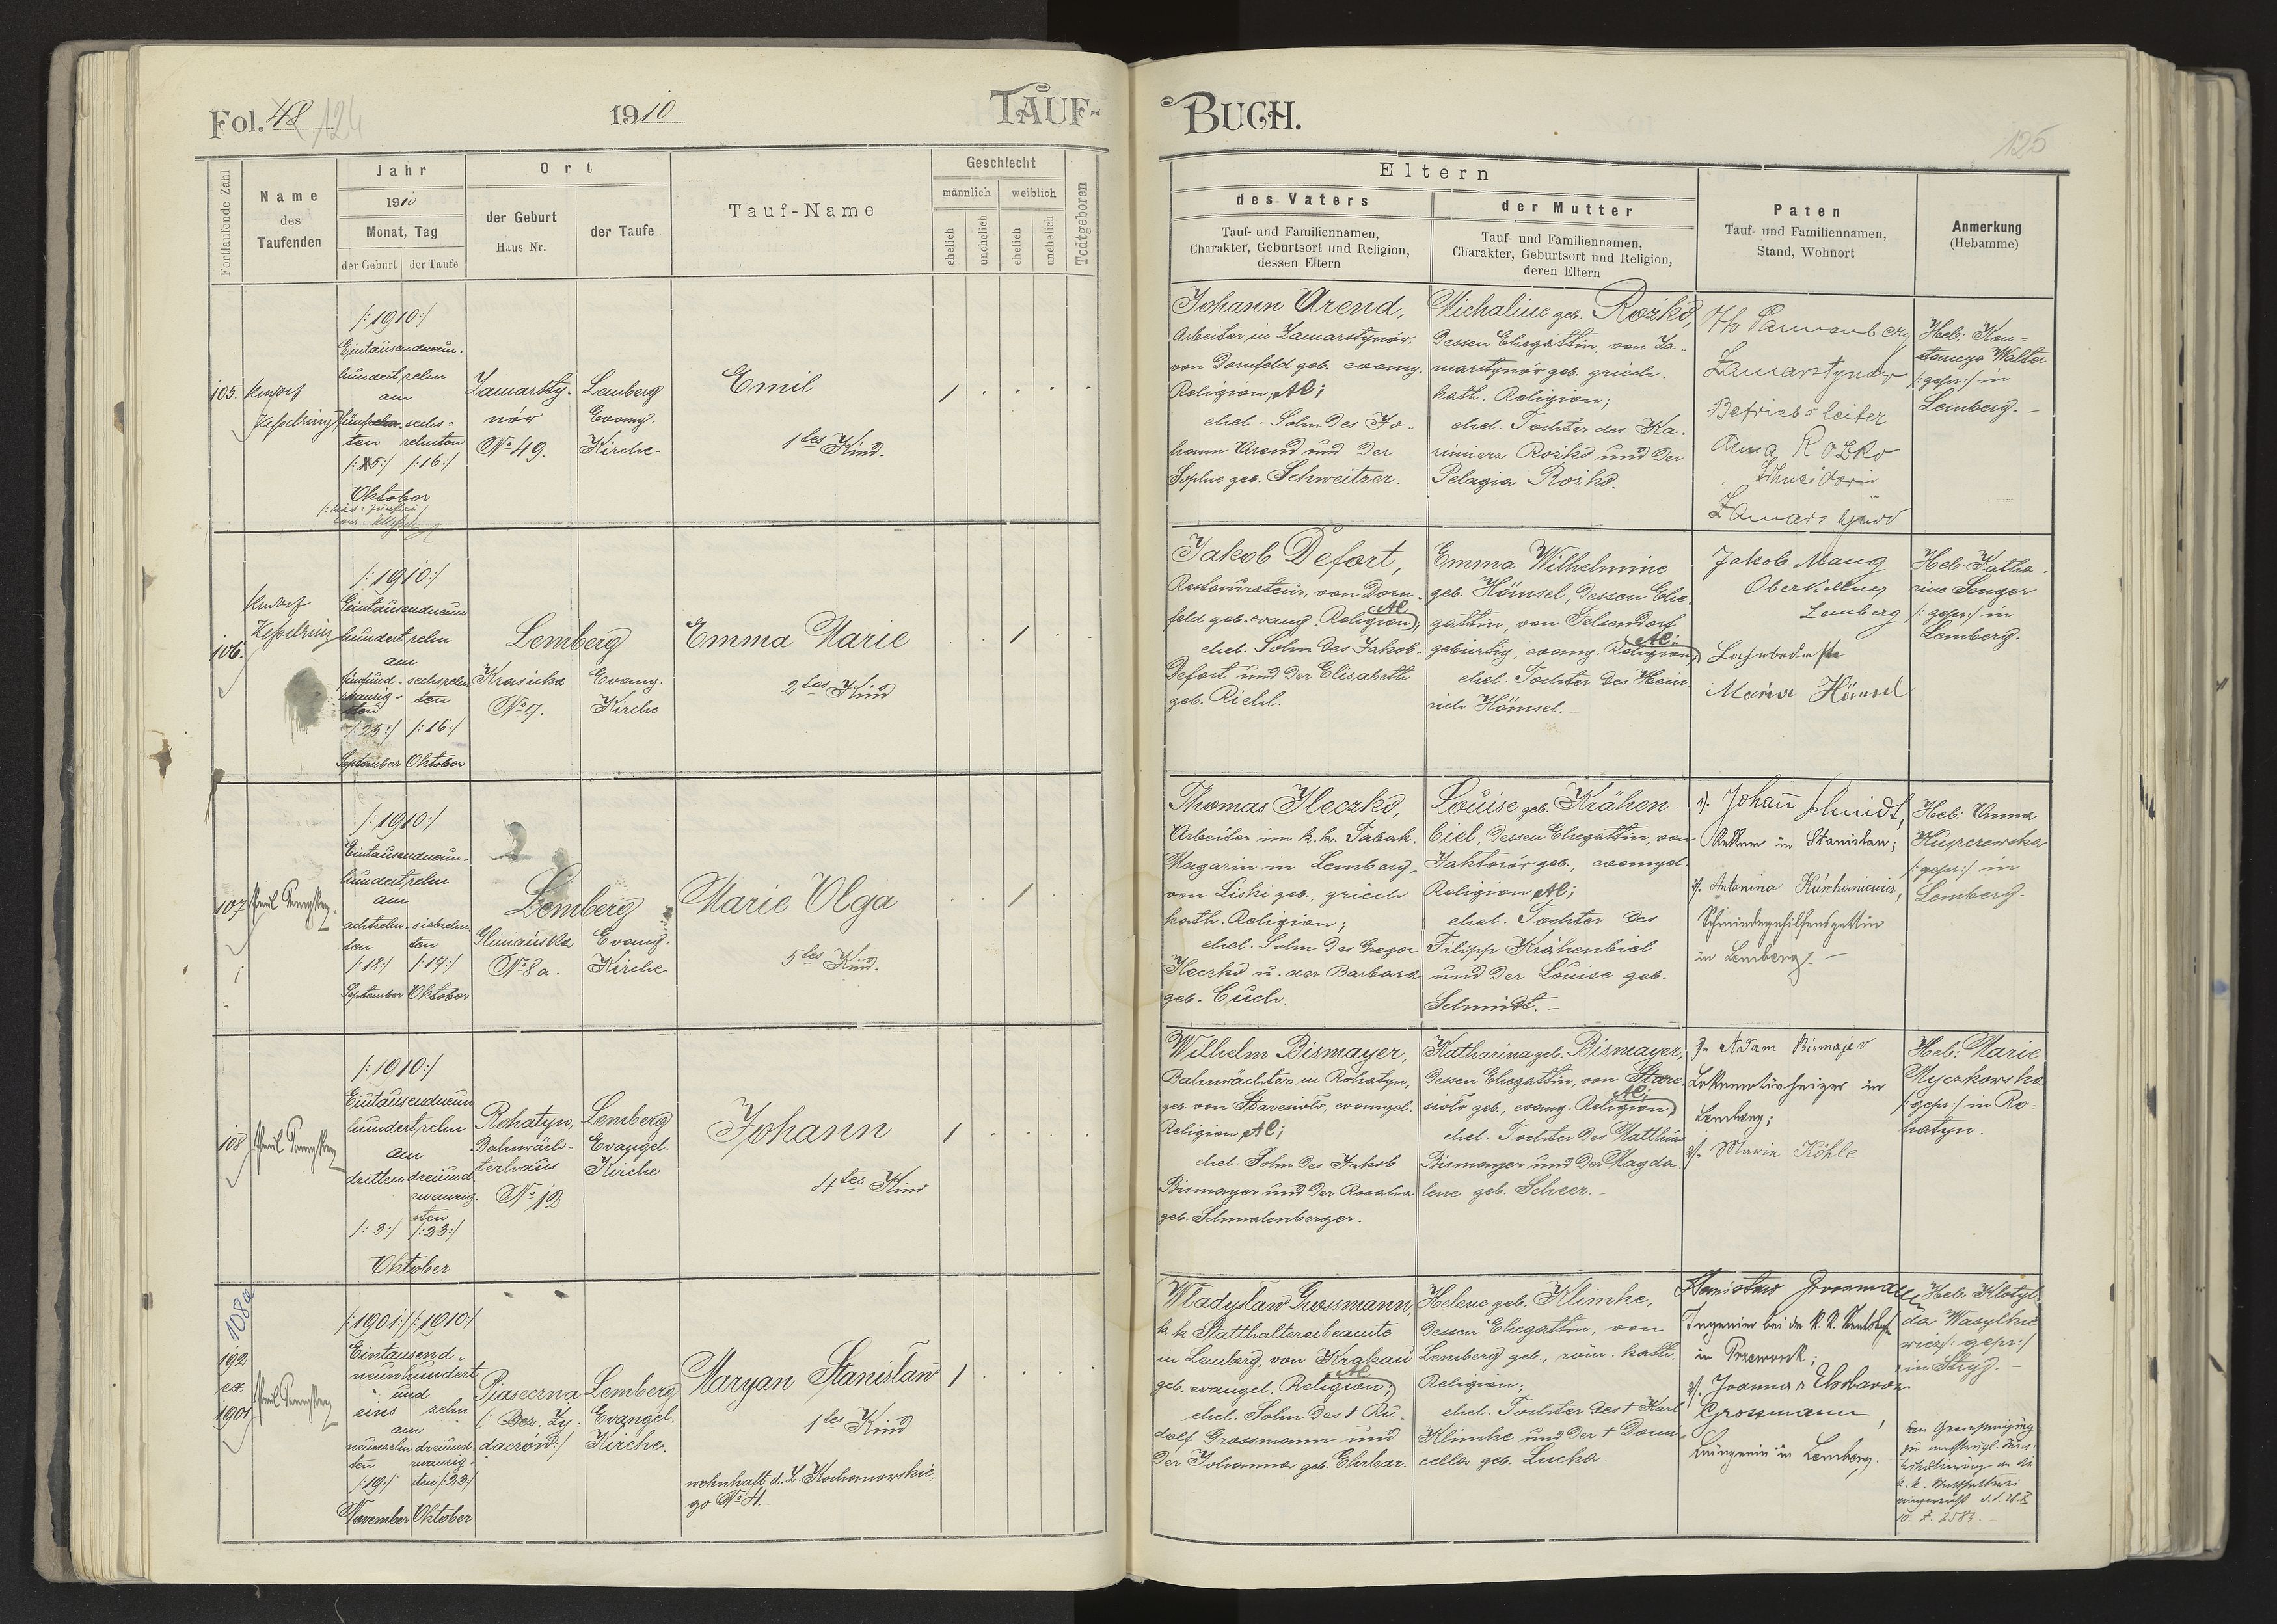 Fol. 48 124
1910
TAUF-
BUCH.
125
Fortlaufende Zahl
Name
des
Taufenden
Jahr
1910
Monat, Tag
der Geburt
der Taufe
Ort
der Geburt
Haus Nr.
der Taufe
Tauf-Name
Geschlecht
männlich
weiblich
ehelich
unehelich
ehelich
unehelich
Todtgeboren
Eltern
des Vaters
Tauf- und Familiennamen,
Charakter, Geburtsort und Religion,
dessen Eltern
der Mutter
Tauf- und Familiennamen,
Charakter, Geburtsort und Religion,
deren Eltern
Paten
Tauf- und Familiennamen,
Stand, Wohnort
Anmerkung
(Hebamme)
105.
Kesselring
/:1910:/
Eintausendneun-
hundert zehn
am
fünf
ten
/:5:/
sechs-
zehnten
/:16:/
Oktober
Zamarsty-
nów
No 49.
Lemberg
Evang.
Kirche.
Emil
1tes Kind.
1
Johann Arend,
Arbeiter in Zamarstynów.
von Dornfeld geb. evang.
Religion, AC;
ehel. Sohn des Jo-
hann Arend und der
Sophie geb. Schweitzer.
Michaline geb. Rożko,
dessen Ehegattin, von Za-
marstynów geb. griech.
kath. Religion;
ehel. Tochter des Ka-
zimierz Rożko und der
Pelagia Rożko.
Pannenberg
Zamarstynów
Betriebsleiter
Anna Rozko
Zamarstynow
Heb: Kon-
stancya Walter
/:gepr:/ in
Lemberg.-
106.
Kesselring
/:1910:/
Eintausendneun
hundert zehn
am
fünfund-
zwanzig-
sten
/:25:/
September
sechszehn
ten
/:16:/
Oktober
Lemberg
Krasicka
No 7.
Evang.
Kirche
Emma Marie
2tes Kind
1
Jakob Defort,
Restaurateur, von Dorn-
feld geb. evang. Religion AC;
ehel. Sohn des Jakob
Defort und der Elisabeth
geb. Riehl.
Emma Wilhelmine
geb. Hömsel, dessen Ehe-
gattin, von Felsendorf
gebürtig, evang. Religion AC;
ehel. Tochter des Hein-
rich Hömsel.-
Jakob Maug
Oberkellner
Lemberg
Maria Hömsel
Heb: Katha-
rine Senger
/:gepr:/ in
Lemberg.
107
/:1910:/
Eintausendneun-
hundert zehn
am
achtzehn-
ten
/:18:/
September
siebzehn
ten
/:17:/
Oktober
2
Lemberg
Gliniańska
No 8a.
Evang.
Kirche
Marie Olga
5tes Kind.
1
Thomas Ileczko,
Arbeiter im k. k. Tabak-
Magazin in Lemberg,
von Liski geb., griech.
kath. Religion;
ehel. Sohn des Gregor
Ileczko u. der Barbara
geb. Cuch.
Louise geb. Krähen-
biel, dessen Ehegattin, von
Jaktorów geb., evangel.
Religion AC;
ehel. Tochter des
Filipp Krähenbiel
und der Louise geb.
Schmidt.-
1). Johann Schmidt,
in Stanislau;
2). Antonina Kuśchaniewicz,
Schmiedegehilfensgattin
in Lemberg.-
Heb: Anna
Huszczewska
/:gepr:/ in
Lemberg.
108
/:1910:/
Eintausendneun
hundert zehn
am
dritten
/:3:/
dreiund
zwanzig-
sten
/:23:/
Oktober
Rohatyn,
Bahnwäch-
terhaus
No 12
Lemberg
Evangel.
Kirche
Johann
4tes Kind
1
Wilhelm Bismayer,
Bahnwächter in Rohatyn,
geb. von Staresioło, evangel.
Religion AC;
ehel. Sohn des Jakob
Bismayer und der Rosalia
geb. Schmalenberger.
Katharina geb. Bismayer,
dessen Ehegattin, von Stare-
sioło geb., evang. Religion AC;
ehel. Tochter des Matthias
Bismayer und der Magda-
lene geb. Scheer.-
1. Adam Bismajer
Lokomotivheizer in
Lemberg;
2). Maria Köhle
Heb: Marie
Myczkowska
/:gepr:/ in Ro-
hatyn.
108a
192
ex
1901
/:1901:/ /:1910:/
Eintausend-
neunhundert
und
eins zehn
am
neunzehn
ten
/:19:/
November
dreiund
zwanzig-
sten /:23:/
Oktober
Piaseczna
/: Bez. Zy-
daczów:/
Lemberg
Evangel.
Kirche.
Maryan Stanisław
1tes Kind
wohnhaft d. Z. Kochanowskie-
go No 4.
1
Władysław Grossmann,
k. k. Statthaltereibeamte
in Lemberg, von Krakau
geb. evangel. Religion AC;
ehel. Sohn des † Ru-
dolf Grossmann und
der Johanna geb. Ehrbar.
Helene geb. Klimke,
dessen Ehegattin, von
Lemberg geb., röm. kath.
Religion;
ehel. Tochter des † Karl
Klimke und der † Domi-
cella geb. Lucka.
Stanisław Grossmann
Ingenier bei der k. k.
in Przeworsk;
2). Joanna z Ehrbarów
Grossmann,
in Lemberg.
Heb: Klotyl-
da Wasylkie
wicz /:gepr:/
in Stryj.-